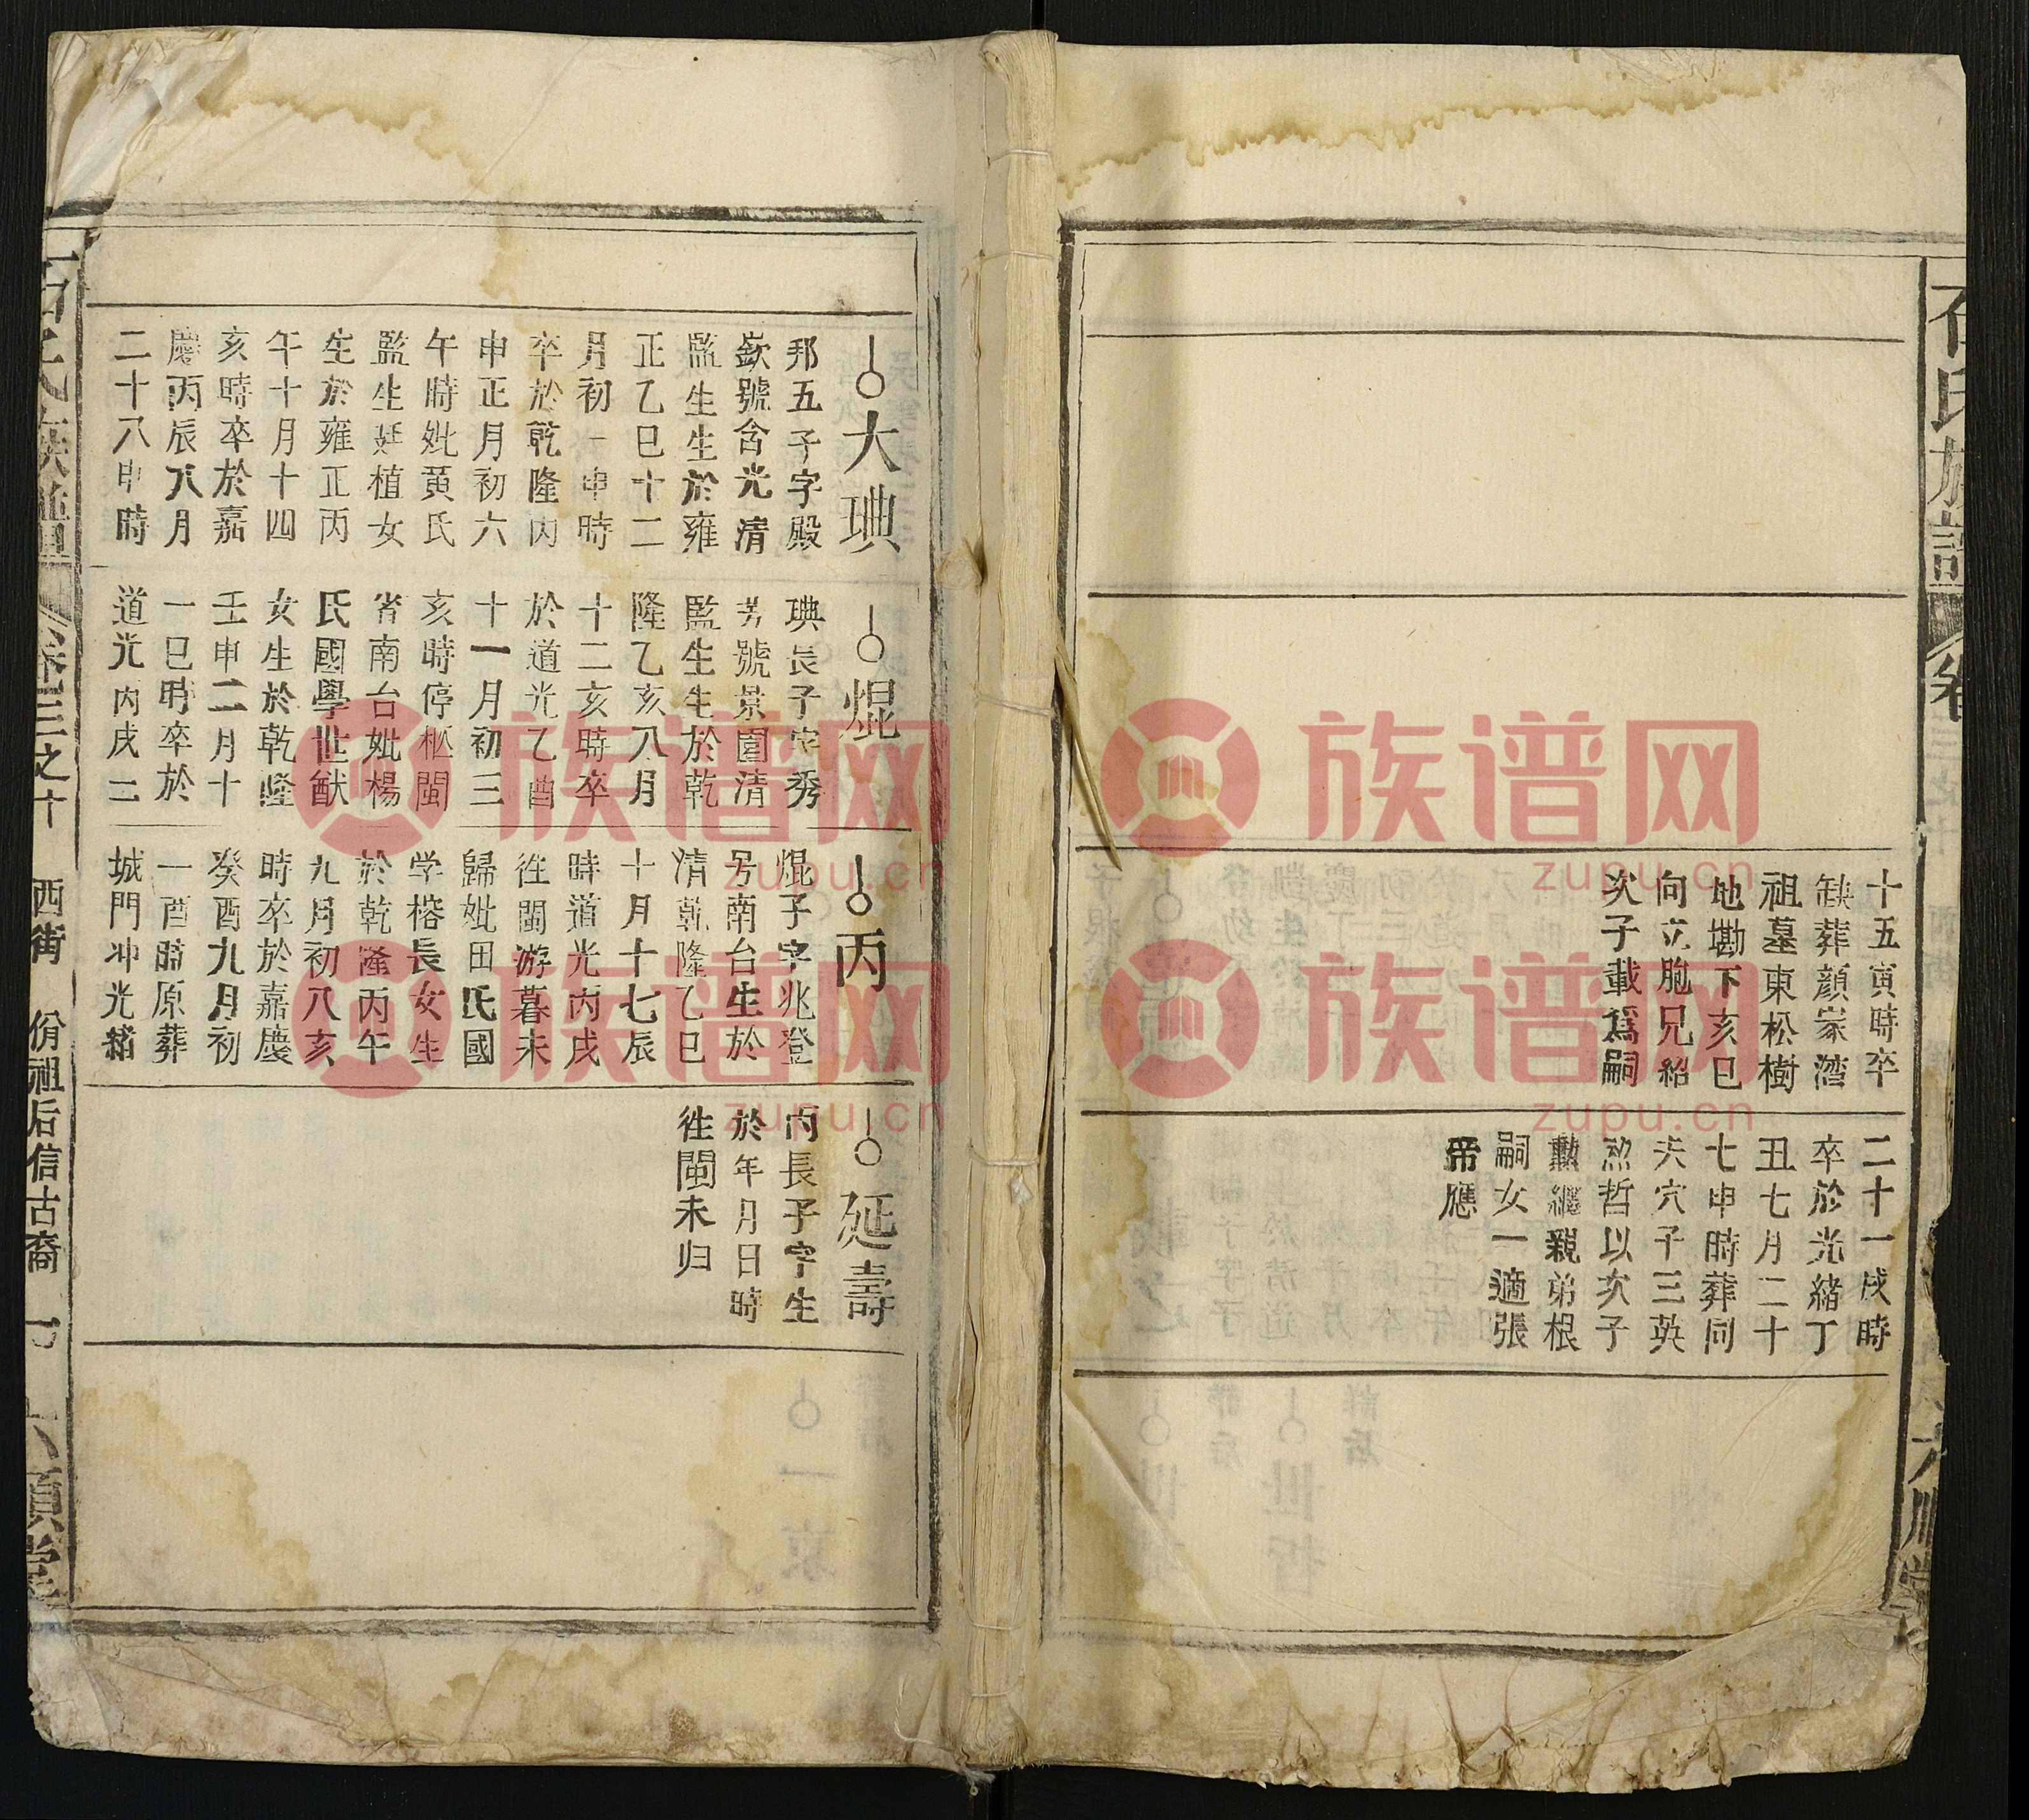 石氏族譜
卷
十五寅時卒
缺葬顔家湾
祖墓東松樹
地墈下亥巳
向立胞兄紹
次子載爲嗣
二十一戌時
卒於光緒丁
丑七月二十
七申時葬同
夫穴子三英
烈哲以次子
勲繼親弟根
嗣女一適張
帝應
大㙉
邦五子字殿
嶔號含光清
監生生於雍
正乙巳十二
月初一申時
卒於乾隆丙
申正月初六
午時妣黄氏
監生廷植女
生於雍正丙
午十月十四
亥時卒於嘉
慶丙辰八月
二十八申時
焜
長子字秀
芳號景園清
監生生於乾
隆乙亥八月
十二亥時卒
於道光乙酉
十一月初三
亥時停柩閩
省南台妣楊
氏國學世猷
女生於乾隆
壬申二月十
一巳時卒於
道光丙戌二
丙
焜子字兆登
号南台生於
清乾隆乙巳
十月十七辰
時道光丙戌
徃閩游暮未
歸妣田氏國
学榕長女生
於乾隆丙午
九月初八亥
時卒於嘉慶
癸酉九月初
一酉時原葬
城門冲光緒
延壽
丙長子字生
於年月日時
徃閩未归
石氏族譜
卷三之十
西街
份祖后信古裔
六順堂
族谱网
zupu.cn
族谱网
zupu.cn
族谱网
zupu.cn
族谱网
zupu.cn